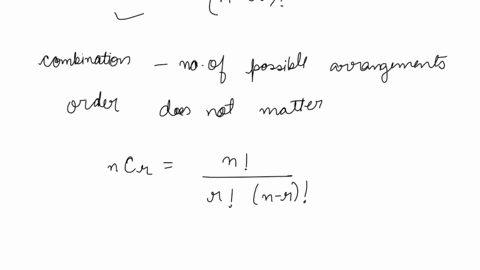 combination – no. of possible arrangements
order does not matter
nCr = n! / r! (n-r)!